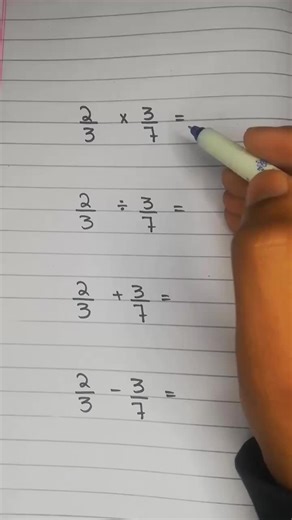 2/3 × 3/7 =
2/3 ÷ 3/7 =
2/3 + 3/7 =
2/3 - 3/7 =